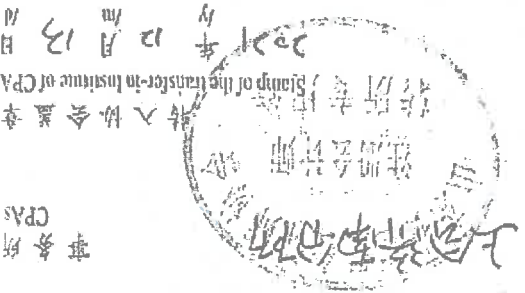 事务所
CPAs
注册会计师
转所专用章
转入协会盖章
Stamp of the transfer-in Institute of CPA
2021年12月13日
/y /m /d